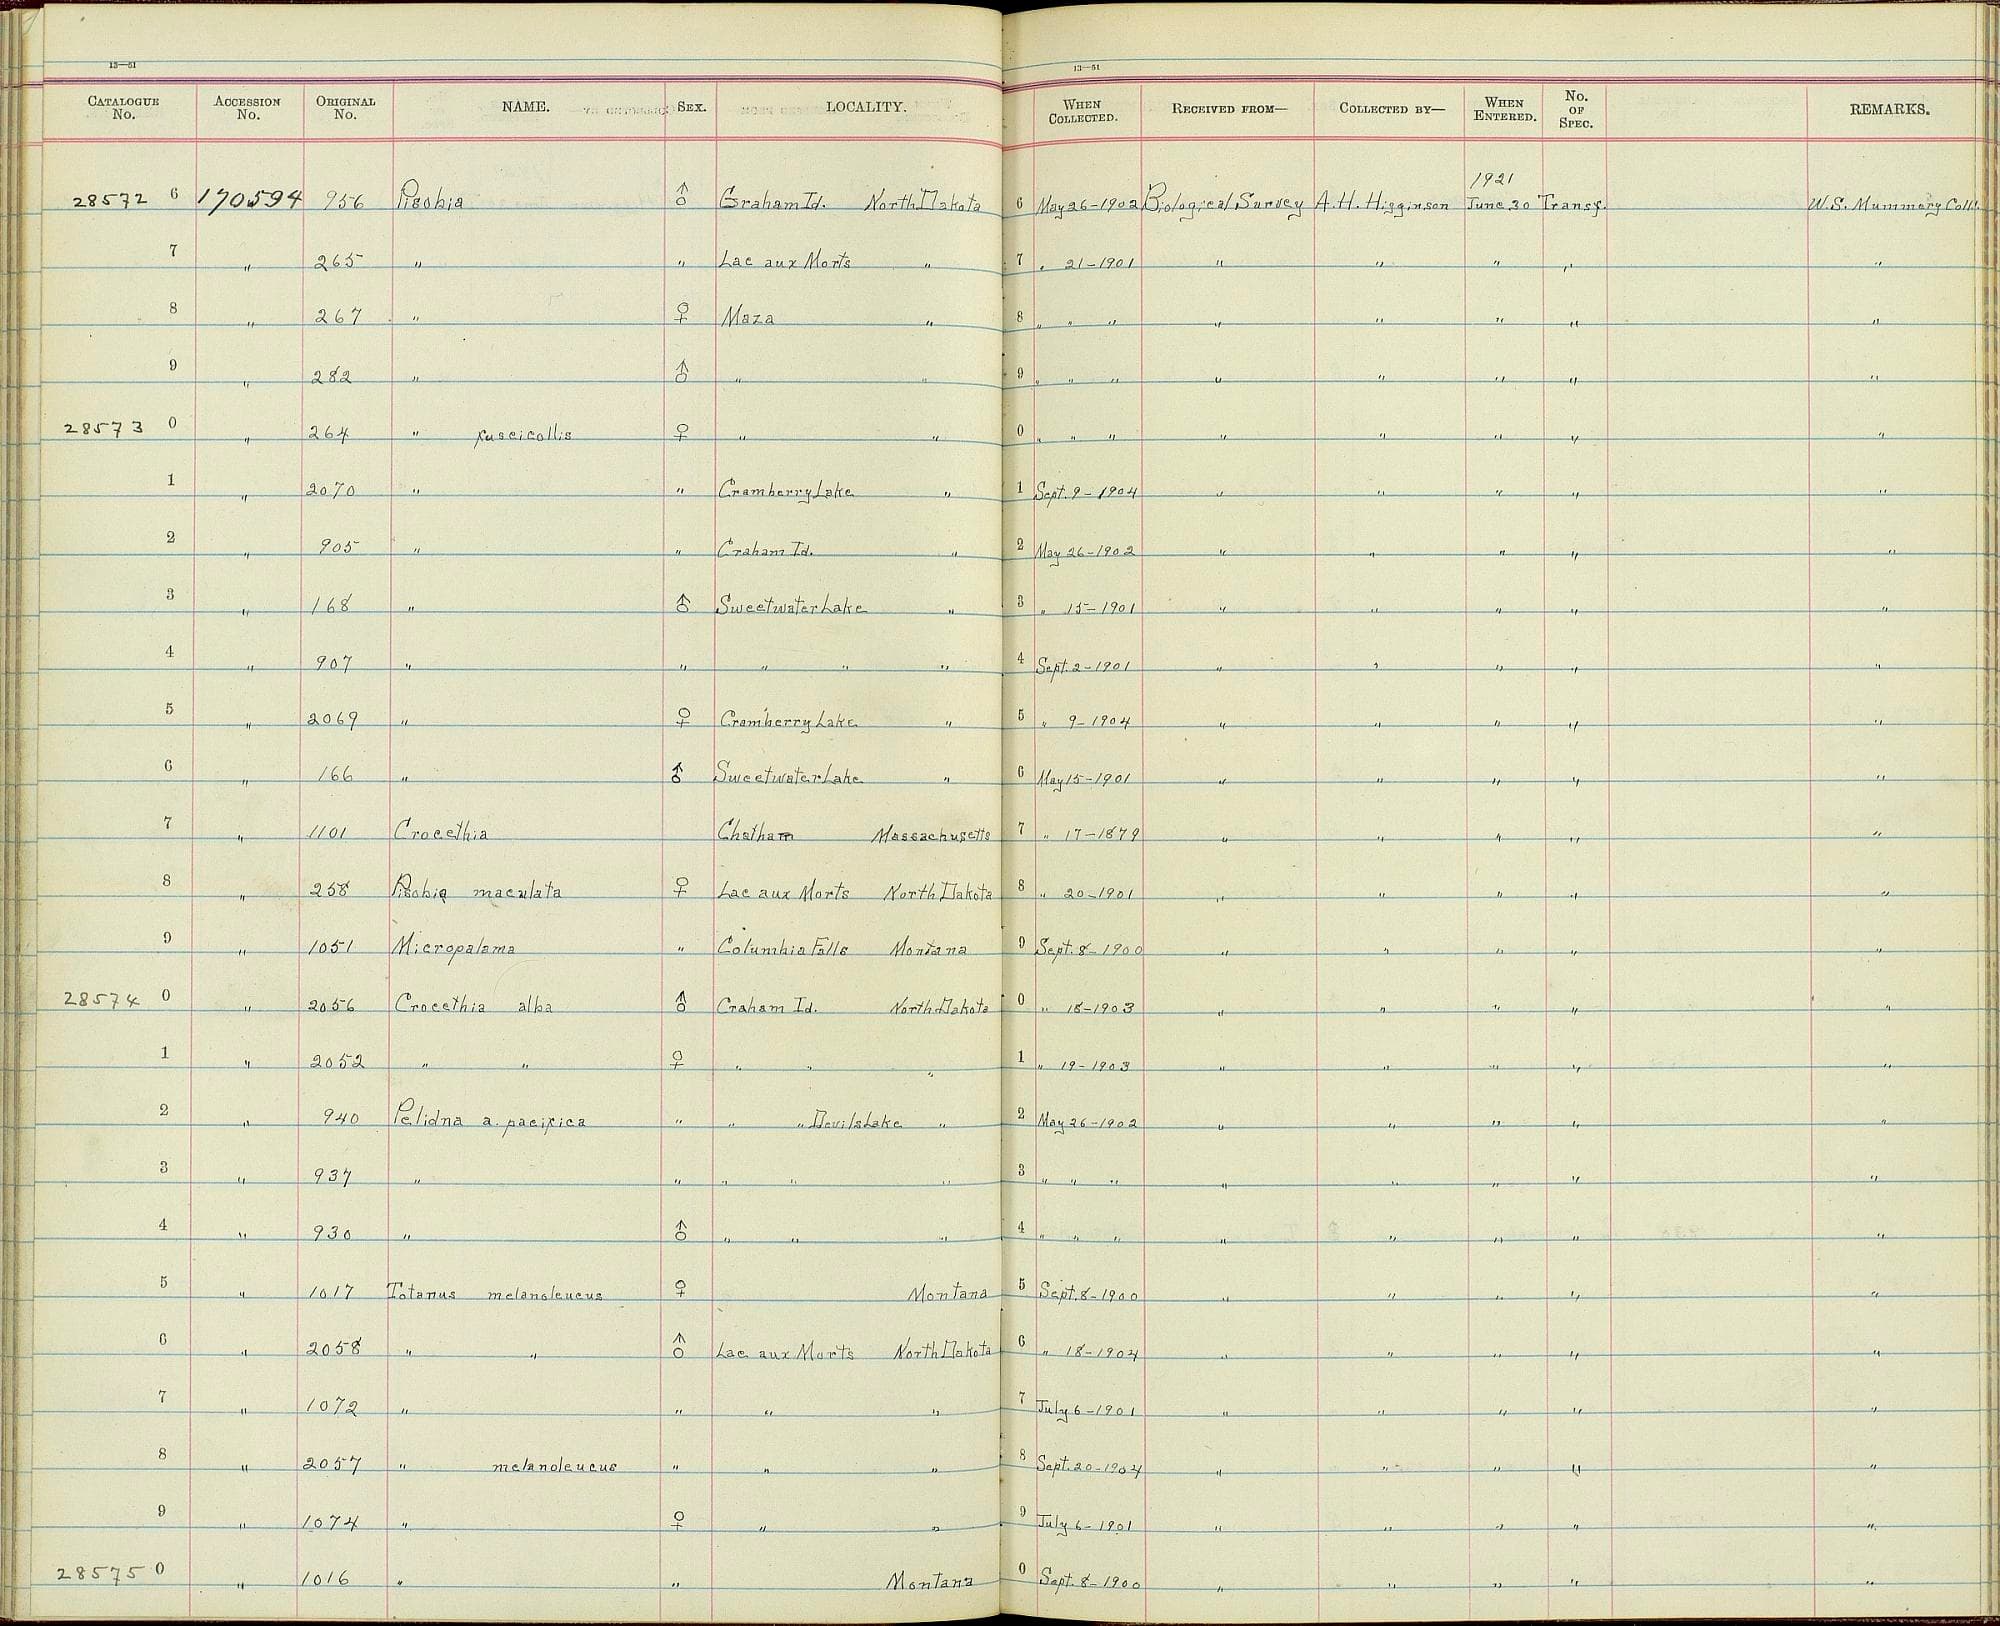 13—51 13—51
CATALOGUE No. ACCESSION No. ORIGINAL No. NAME. SEX. LOCALITY. WHEN COLLECTED. RECEIVED FROM— COLLECTED BY— WHEN ENTERED. No. OF SPEC. REMARKS.
1921
28572 6 170594 956 Pisobia ♂ Graham Id. North Dakota 6 May 26-1902 Biological Survey A.H. Higginson June 30 Transf. W.S. Mummery Coll.
7 " 265 " " Lac aux Morts " 7 " 21-1901 " " " " "
8 " 267 " ♀ Maza " 8 " " " " " " " "
9 " 282 " ♂ " " 9 " " " " " " " "
28573 0 " 264 " fuscicollis ♀ " " 0 " " " " " " " "
1 " 2070 " " Cramberry Lake " 1 Sept. 9-1904 " " " " "
2 " 905 " " Graham Id. " 2 May 26-1902 " " " " "
3 " 168 " ♂ Sweetwater Lake " 3 " 15-1901 " " " " "
4 " 907 " " " " " 4 Sept. 2-1901 " " " " "
5 " 2069 " ♀ Cramberry Lake " 5 " 9-1904 " " " " "
6 " 166 " ♂ Sweetwater Lake " 6 May 15-1901 " " " " "
7 " 1101 Crocethia Chatham Massachusetts 7 " 17-1879 " " " " "
8 " 258 Pisobia maculata ♀ Lac aux Morts North Dakota 8 " 20-1901 " " " " "
9 " 1051 Micropalama " Columbia Falls Montana 9 Sept. 8-1900 " " " " "
28574 0 " 2056 Crocethia alba ♂ Graham Id. North Dakota 0 " 18-1903 " " " " "
1 " 2052 " " ♀ " " " 1 " 19-1903 " " " " "
2 " 940 Pelidna a. pacifica " " " Devils Lake " 2 May 26-1902 " " " " "
3 " 937 " " " " " 3 " " " " " " " "
4 " 930 " ♂ " " " 4 " " " " " " " "
5 " 1017 Totanus melanoleucus ♀ Montana 5 Sept. 8-1900 " " " " "
6 " 2058 " " ♂ Lac aux Morts North Dakota 6 " 18-1904 " " " " "
7 " 1072 " " " " 7 July 6-1901 " " " " "
8 " 2057 " melanoleucus " " " 8 Sept. 20-1904 " " " " "
9 " 1074 " ♀ " " 9 July 6-1901 " " " " "
28575 0 " 1016 " " Montana 0 Sept. 8-1900 " " " " "